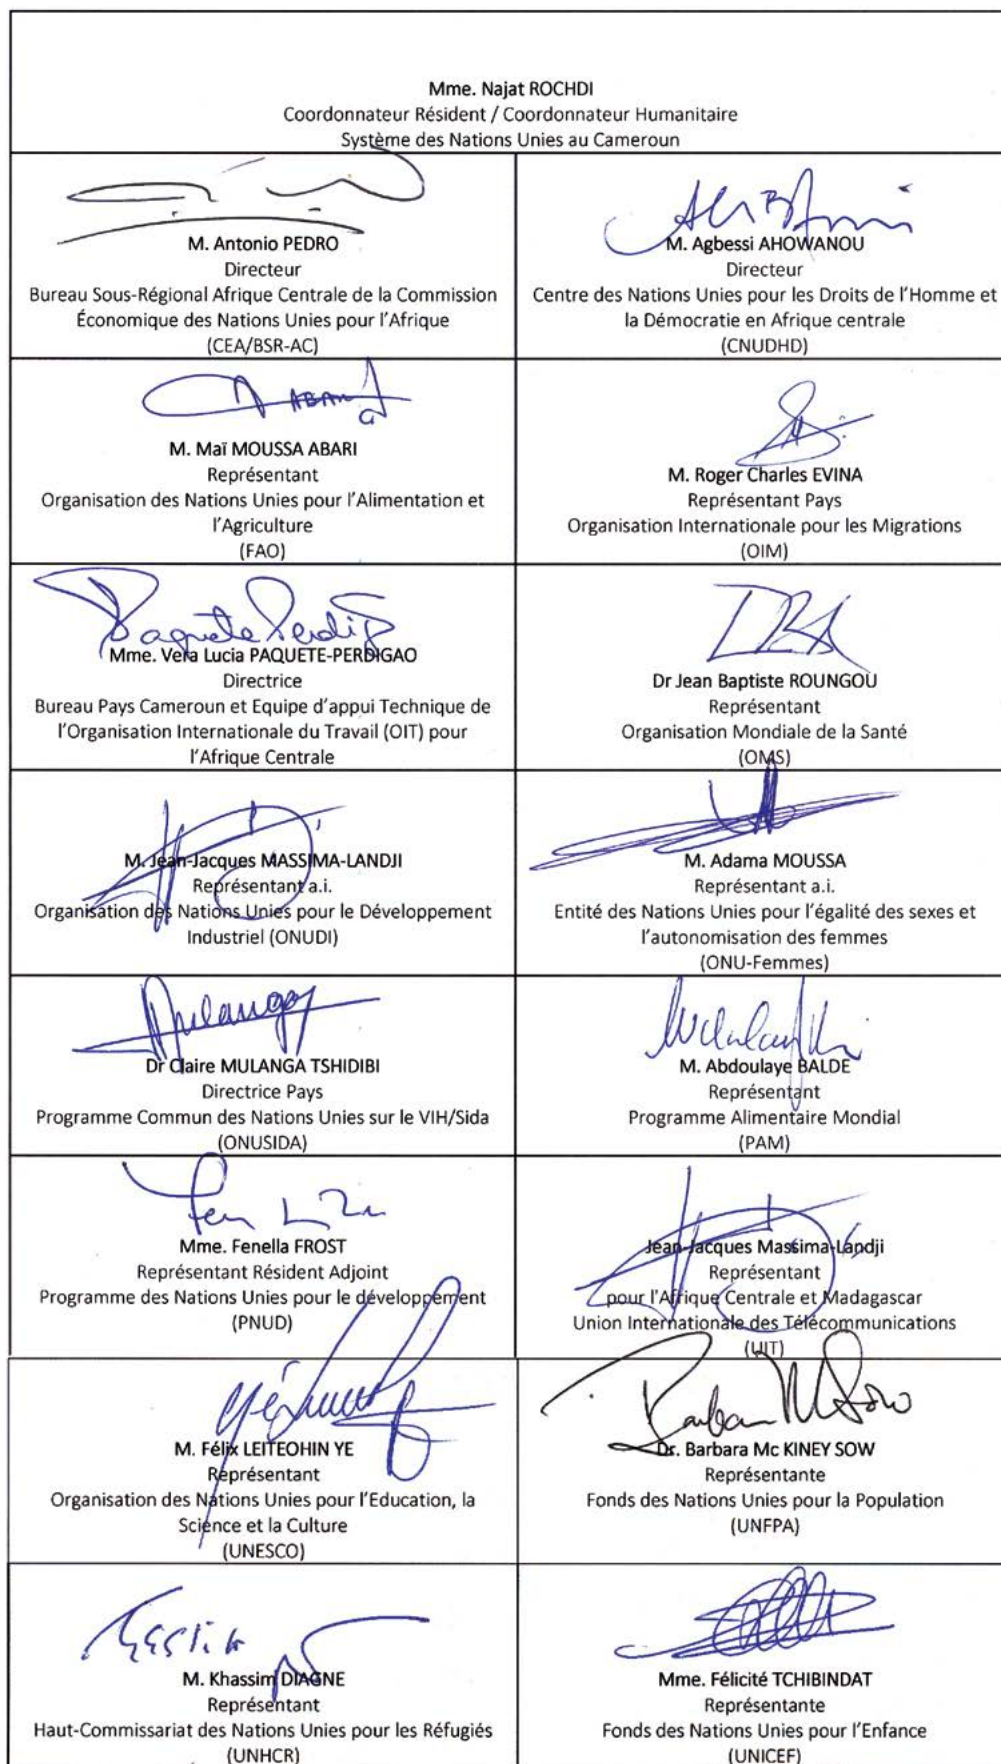 Mme. Najat ROCHDI
Coordonnateur Résident / Coordonnateur Humanitaire
Système des Nations Unies au Cameroun
M. Antonio PEDRO
Directeur
Bureau Sous-Régional Afrique Centrale de la Commission
Économique des Nations Unies pour l'Afrique
(CEA/BSR-AC)
M. Agbessi AHOWANOU
Directeur
Centre des Nations Unies pour les Droits de l'Homme et
la Démocratie en Afrique centrale
(CNUDHD)
ABARI
M. Maï MOUSSA ABARI
Représentant
Organisation des Nations Unies pour l'Alimentation et
l'Agriculture
(FAO)
M. Roger Charles EVINA
Représentant Pays
Organisation Internationale pour les Migrations
(OIM)
Paquete Perdig
Mme. Vera Lucia PAQUETE-PERDIGAO
Directrice
Bureau Pays Cameroun et Equipe d'appui Technique de
l'Organisation Internationale du Travail (OIT) pour
l'Afrique Centrale
Dr Jean Baptiste ROUNGOU
Représentant
Organisation Mondiale de la Santé
(OMS)
M. Jean-Jacques MASSIMA-LANDJI
Représentant a.i.
Organisation des Nations Unies pour le Développement
Industriel (ONUDI)
M. Adama MOUSSA
Représentant a.i.
Entité des Nations Unies pour l'égalité des sexes et
l'autonomisation des femmes
(ONU-Femmes)
Mulanga
Dr Claire MULANGA TSHIDIBI
Directrice Pays
Programme Commun des Nations Unies sur le VIH/Sida
(ONUSIDA)
M. Abdoulaye BALDE
Représentant
Programme Alimentaire Mondial
(PAM)
Mme. Fenella FROST
Représentant Résident Adjoint
Programme des Nations Unies pour le développement
(PNUD)
Jean-Jacques Massima-Landji
Représentant
pour l'Afrique Centrale et Madagascar
Union Internationale des Télécommunications
(UIT)
M. Félix LEITEOHIN YE
Représentant
Organisation des Nations Unies pour l'Education, la
Science et la Culture
(UNESCO)
Dr. Barbara Mc KINEY SOW
Représentante
Fonds des Nations Unies pour la Population
(UNFPA)
M. Khassim DIAGNE
Représentant
Haut-Commissariat des Nations Unies pour les Réfugiés
(UNHCR)
Mme. Félicité TCHIBINDAT
Représentante
Fonds des Nations Unies pour l'Enfance
(UNICEF)